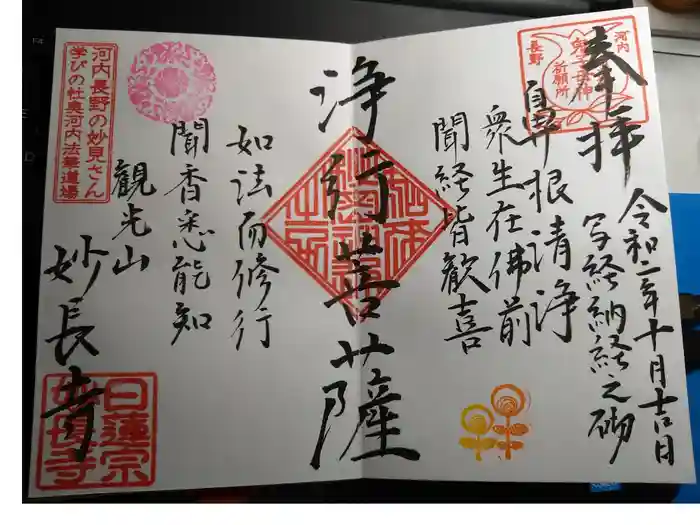 奉拝
河内
長野
鬼子母神
祈願所
令和二年十月吉日
写経納経之砌
鼻根清浄
衆生在佛前
聞経皆歓喜
浄行菩薩
如法而修行
聞香悉能知
観光山
妙長寺
河内長野の妙見さん
学びの杜奥河内法華道場
日蓮宗
妙長寺